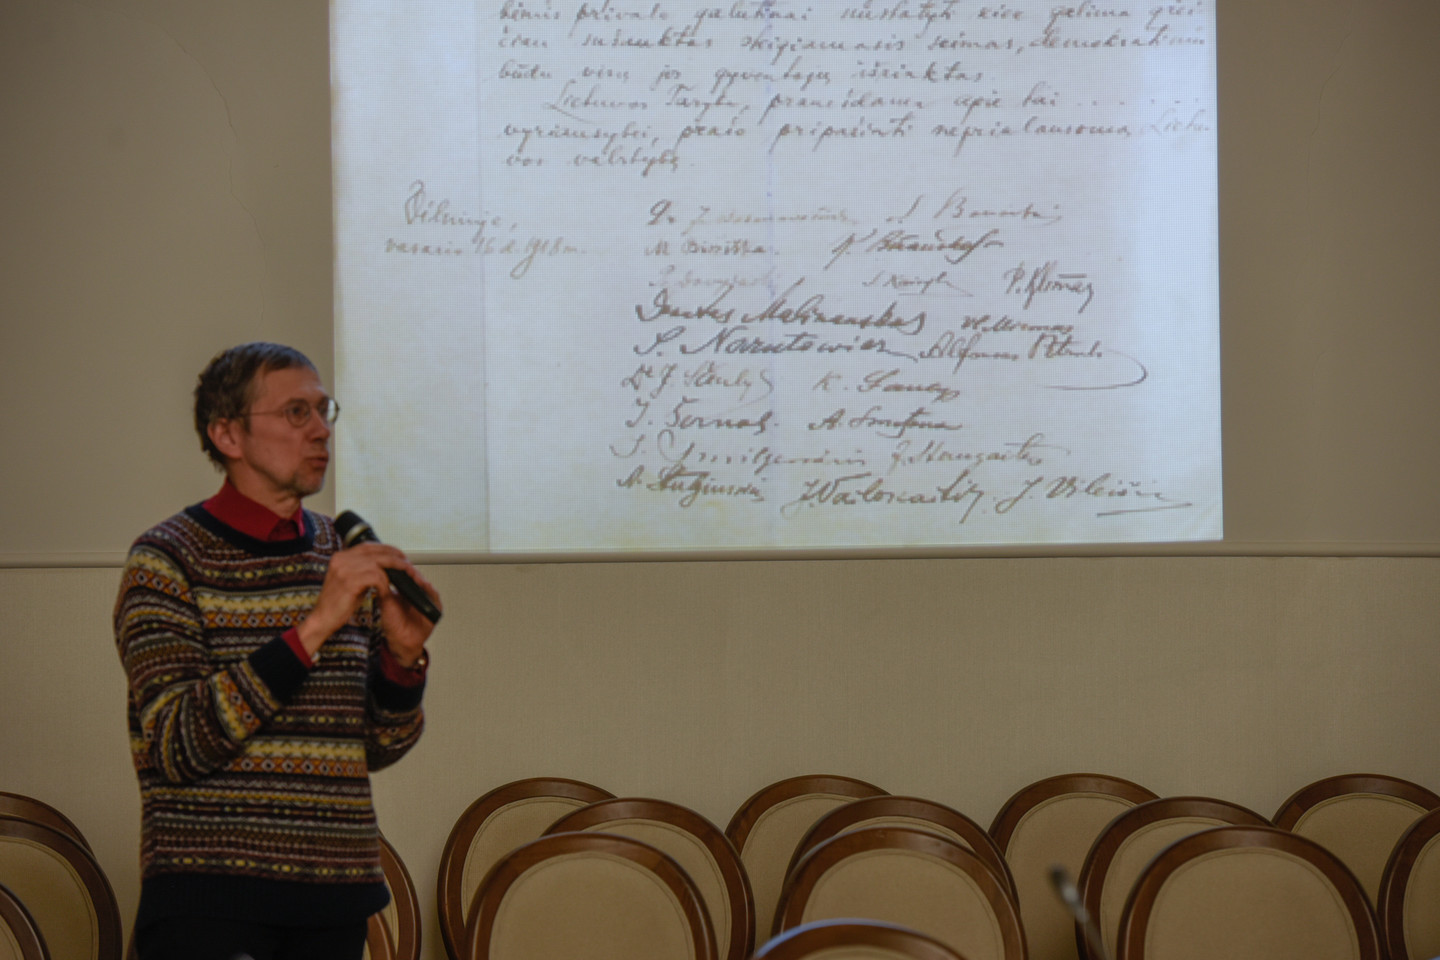 bėmis privalo galutinai nustatyti kiek galima grei-
čiau sušauktas steigiamasis seimas, demokratiniu
būdu visų jos gyventojų išrinktas.
Lietuvos Taryba, pranešdama apie tai . . . . . .
vyriausybei, prašo pripažinti nepriklausomą Lietu-
vos valstybę.
Vilniuje,
vasario 16 d. 1918 m.
Dr. J. Basanavičius S. Banaitis
M. Biržiška K. Bizauskas
P. Klimas
Donatas Malinauskas Vl. Mironas
S. Narutowicz Alfonsas Petrulis
Dr J. Šaulys K. Šaulys
J. Šernas. A. Smetona
J. Smilgevičius J. Staugaitis
A. Stulginskis J. Vailokaitis J. Vileišis